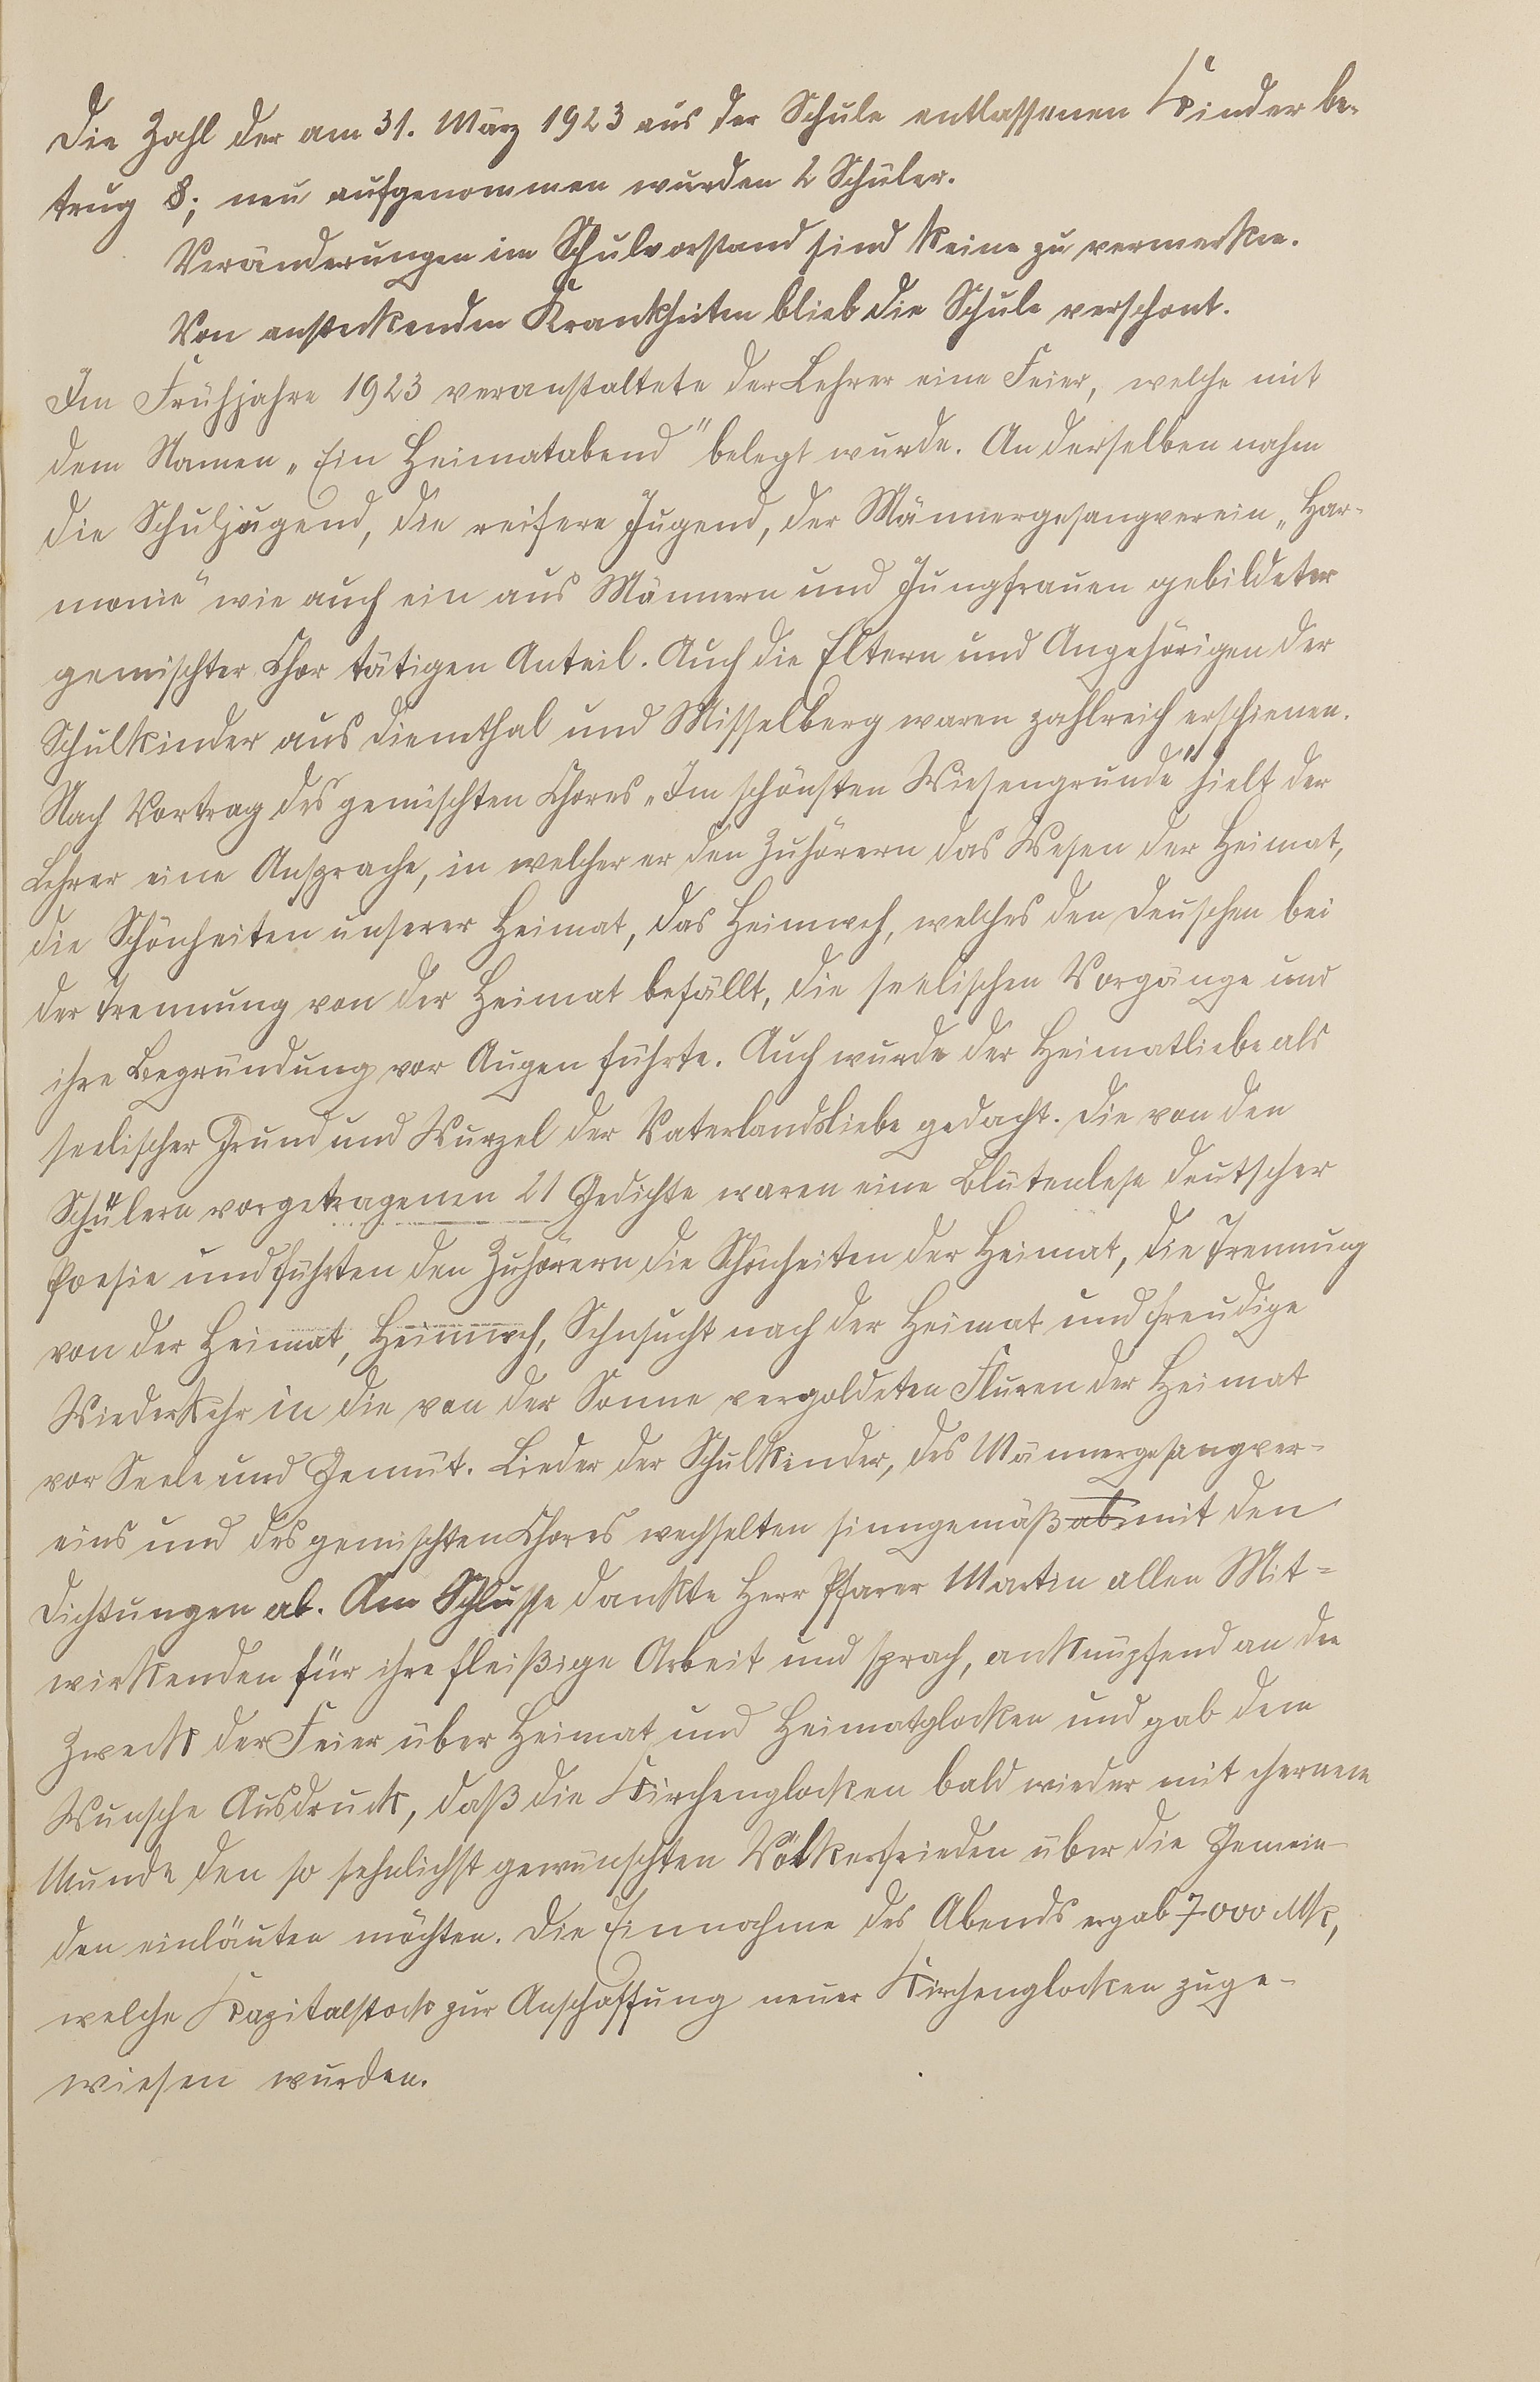 Die Zahl der am 31. März 1923 aus der Schule entlassenen Kinder be-
trug 8; neu aufgenommen wurden 2 Schüler.
Veränderungen im Schulvorstand sind keine zu vermerken.
Von ansteckenden Krankheiten blieb die Schule verschont.
Im Frühjahre 1923 veranstaltete der Lehrer eine Feier, welche mit
dem Namen „Ein Heimatabend" belegt wurde. An derselben nahm
die Schuljugend, die reifere Jugend, der Männergesangverein „Har-
monie" wie auch ein aus Männern und Jungfrauen gebildeter
gemischter Chor tätigen Anteil. Auch die Eltern und Angehörigen der
Schulkinder aus Dienthal und Misselberg waren zahlreich erschienen.
Nach Vortrag des gemischten Chores „Im schönsten Wiesengrunde" hielt der
Lehrer eine Ansprache, in welcher er den Zuhörern das Wesen der Heimat,
die Schönheiten unserer Heimat, das Heimweh, welches den Deuschen bei
der Trennung von der Heimat befällt, die seelischen Vorgänge und
ihre Begründung vor Augen führte. Auch wurde der Heimatliebe als
seelischer Grund und Wurzel der Vaterlandsliebe gedacht. Die von den
Schülern vorgetragenen 21 Gedichte waren eine Blütenlese deutscher
Poesie und führten den Zuhörern die Schönheiten der Heimat, die Trennung
von der Heimat, Heimweh, Sehnsucht nach der Heimat und freudige
Wiederkehr in die von der Sonne vergoldeten Fluren der Heimat
vor Seele und Gemüt. Lieder der Schulkinder, des Männergesangver-
eins und des gemischten Chores wechselten sinngemäß ab mit den
Dichtungen ab. Am Schlusse dankte Herr Pfarrer Martin allen Mit-
wirkenden für ihre fleißige Arbeit und sprach, anknüpfend an die
Zweck der Feier über Heimat und Heimatglocken und gab dem
Wunsche Ausdruck, daß die Kirchenglocken bald wieder mit ehernem
Munde den so sehnlichst gewünschten Völkerfrieden über die Gemein-
den einläuten möchten. Die Einnahme des Abends ergab 7000 Mk,
welche Kapitalstock zur Anschaffung neuer Kirchenglocken zuge-
wiesen wurden.